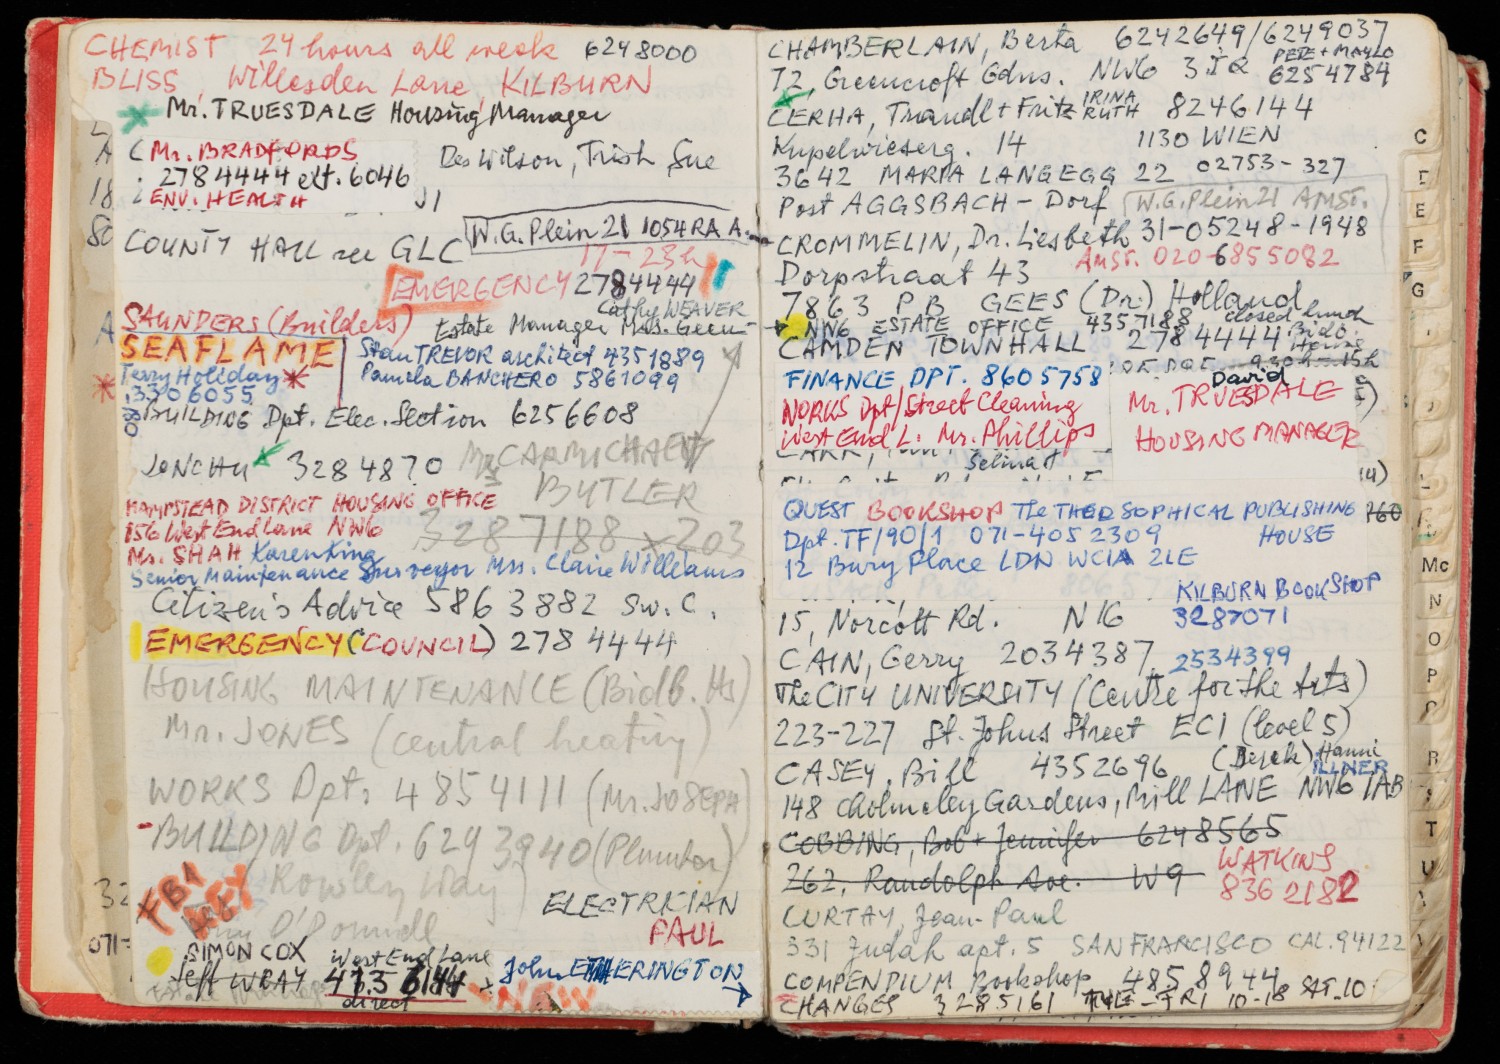 CHEMIST 24 hours all week 6248000
BLISS, Willesden Lane, KILBURN
Mr. TRUESDALE Housing Manager
Mr. BRADFORDS
2784444 ext. 6046
ENV. HEALTH
Des Wilson, Trish Sue
W.G. Plein 21 1054RA A.
COUNTY HALL see GLC
17-23h
EMERGENCY 2784444
Cathy WEAVER
SAUNDERS (Builders)
Estate Manager Mrs. Green
SEAFLAME
Stan TREVOR architect 4351889
Terry Holiday
Pamela BANCHERO 5861099
3306055
BUILDING Dpt. Elec. Section 6256608
JONCHU 3284870
Mr CARMICHAEL
BUTLER
HAMPSTEAD DISTRICT HOUSING OFFICE
156 West End Lane NW6
328 7188 x203
Ms. SHAH Karen King
Senior Maintenance Surveyor Mrs. Claire Williams
Citizen's Advice 586 3882 Sw. C.
EMERGENCY (COUNCIL) 278 4444
HOUSING MAINTENANCE (Bidb. Hs)
Mr. JONES (central heating)
WORKS Dpt. 4854111 (Mr. JOSEPH)
BUILDING Dpt. 629 3940 (Plumber)
Rowley Way
O'Donnell
32
FB1
KEY
ELECTRICIAN
PAUL
071-
SIMON COX West End Lane
Jeff WRAY 435 6144
John ETHERINGTON
direct
NEW
CHAMBERLAIN, Berta 6242649/6249037
PETE + MAYLO
72, Greencroft Gdns. NW6 3JQ 6254784
IRINA
CERHA, Traudl + Fritz RUTH 8246144
Kupelwieserg. 14 1130 WIEN
3642 MARIA LANGEGG 22 02753-327
Post AGGSBACH-Dorf
W.G. Plein 21 AMST.
CROMMELIN, Dr. Liesbeth 31-05248-1948
Dorpstraat 43
AMST. 020-6855082
7863 PB GEES (Dr.) Holland
NW6 ESTATE OFFICE 4357188 closed lunch
CAMDEN TOWNHALL 2784444 Bidb. House
9.30h-15h
FINANCE DPT. 8605758
David
WORKS Dpt/Street Cleaning
West End L. Mr. Phillips
Mr. TRUESDALE
HOUSING MANAGER
QUEST BOOKSHOP The THEOSOPHICAL PUBLISHING HOUSE
Dpt. TF/90/1 071-405 2309
12 Bury Place LDN WC1A 2LE
KILBURN BOOKSHOP
3287071
15, Norcott Rd. N16
CAIN, Gerry 2034387
2534399
The CITY UNIVERSITY (Centre for the Arts)
223-227 St. Johns Street EC1 (level 5)
CASEY, Bill 4352696 (Dick) Hanni
ILLNER
148 Cholmeley Gardens, Mill LANE NW6 1AB
COBBING, Bob + Jennifer 6248565
262, Randolph Ave. W9
WATKINS
836 2182
CURTAY Jean-Paul
331 Judah apt. 5 SAN FRANCISCO CAL. 94122
COMPENDIUM Bookshop 485 8944
CHANGES 3285161 TUE-FRI 10-18 SAT. 10
C
I
E
F
G
Mc
N
O
P
R
T
U